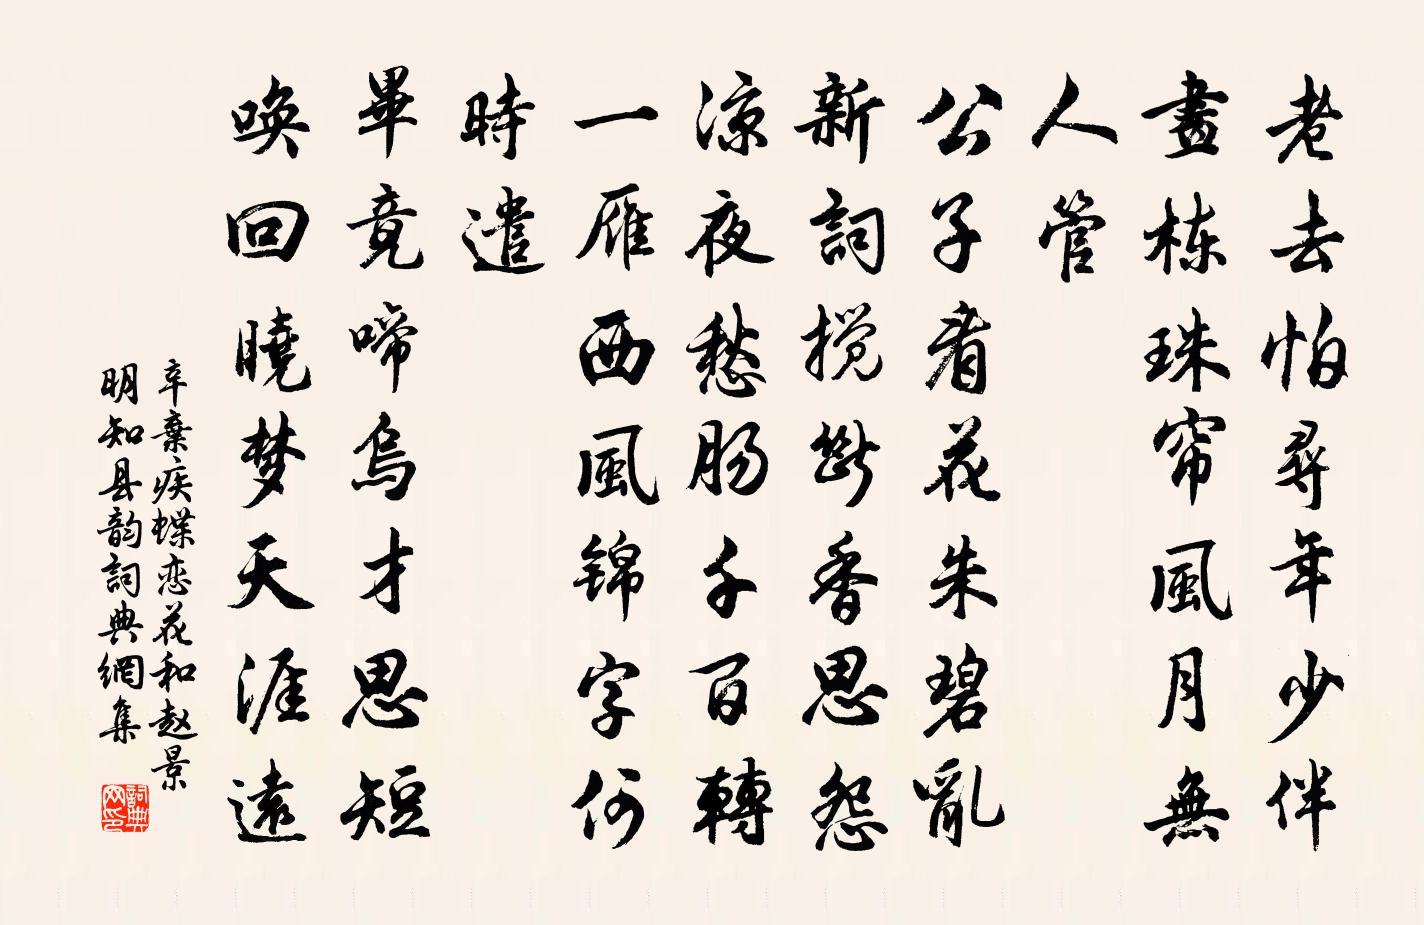 老去怕尋年少伴
畫栋珠帘風月無
人管
公子看花朱碧亂
新詞搅斷香思怨
凉夜愁肠千百轉
一雁西風锦字何
時遣
畢竟啼烏才思短
唤回曉梦天涯遠
辛棄疾蝶恋花和赵景
明知县韵詞典網集
詞典
网印